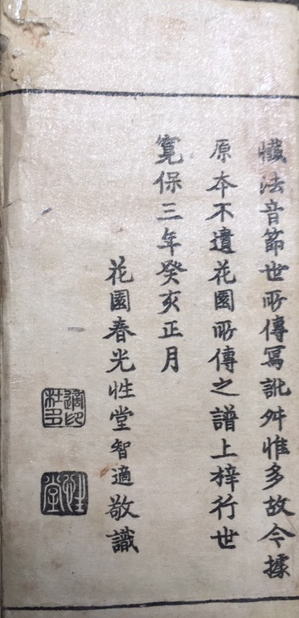 懴法音節世所傳寫訛舛惟多故今據
原本不遺花園所傳之譜上梓行世
寛保三年癸亥正月
花園春光性堂智適敬識
性堂